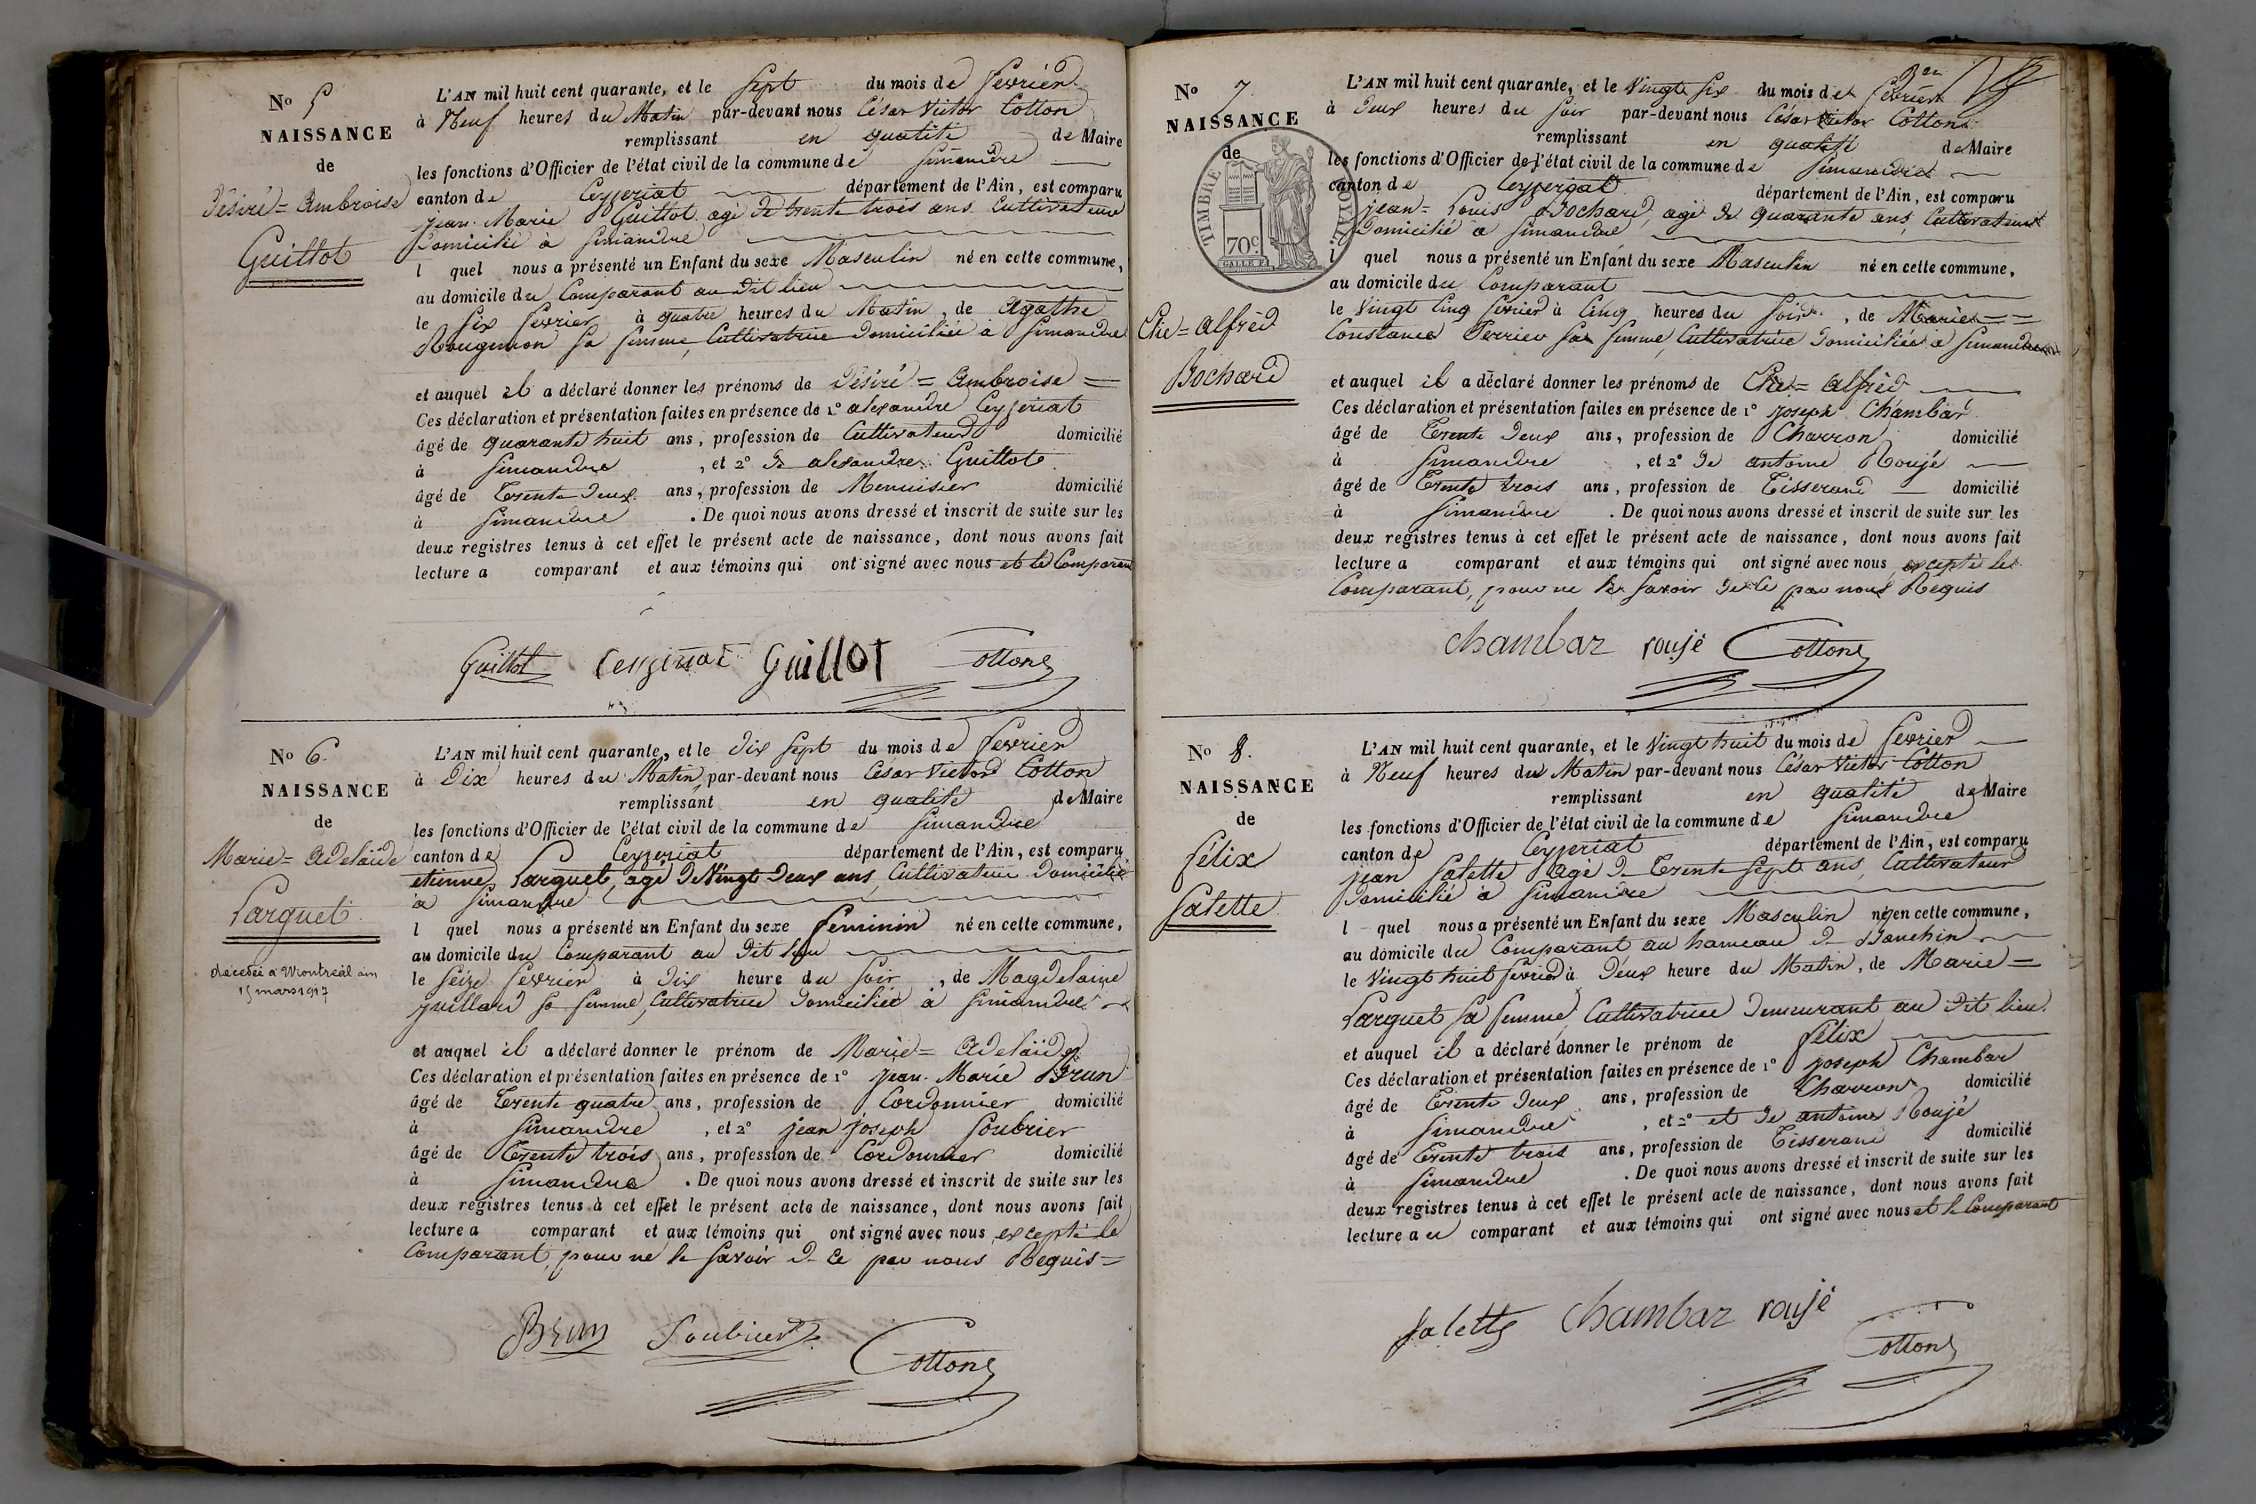 No 5
NAISSANCE
de
Désiré = Ambroise
Guillot
L'AN mil huit cent quarante, et le Sept du mois de fevrier
à Neuf heures du Matin par-devant nous César Victor Cotton
remplissant en qualité de Maire
les fonctions d'Officier de l'état civil de la commune de Simandre
canton de Ceyzeriat département de l'Ain, est comparu
jean Marie Guillot agé de trente trois ans Cultivateur
Domicilié a Simandre
l quel nous a présenté un Enfant du sexe Masculin né en cette commune,
au domicile du Comparant au dit lieu
le Six fevrier à quatre heures du Matin, de Agathe
Rougemon Sa femme, Cultivatrice Domiciliée a Simandre
et auquel il a déclaré donner les prénoms de Désiré = Ambroise =
Ces déclaration et présentation faites en présence de 1º alexandre Ceyzeriat
âgé de quarante huit ans, profession de Cultivateur domicilié
à Simandre, et 2º de alexandre Guillot
âgé de Trente Deux ans, profession de Menuisier domicilié
à Simandre. De quoi nous avons dressé et inscrit de suite sur les
deux registres tenus à cet effet le présent acte de naissance, dont nous avons fait
lecture a comparant et aux témoins qui ont signé avec nous et le Comparant
Guillot Ceyzeriat Guillot Cotton
No 6.
NAISSANCE
de
Marie = Adelaïde
Larguet
décédée a Montréal ain
15 mars 1917
L'AN mil huit cent quarante, et le Dix Sept du mois de fevrier
à Dix heures du Matin par-devant nous César Victor Cotton
remplissant en qualité de Maire
les fonctions d'Officier de l'état civil de la commune de Simandre
canton de Ceyzeriat département de l'Ain, est comparu
etienne Larguet, agé de Vingt Deux ans, Cultivateur Domicilié
a Simandre
l quel nous a présenté un Enfant du sexe feminin né en cette commune,
au domicile du Comparant au Dit lieu
le Seize fevrier à Dix heure du Soir, de Magdelaine
juillard Sa femme, Cultivatrice Domiciliée a Simandre
et auquel il a déclaré donner le prénom de Marie = Adelaïde
Ces déclaration et présentation faites en présence de 1º jean Marie Brun
âgé de Trente quatre ans, profession de Cordonnier domicilié
à Simandre, et 2º jean joseph Soubrier
âgé de Trente trois ans, profession de Cordonnier domicilié
à Simandre. De quoi nous avons dressé et inscrit de suite sur les
deux registres tenus à cet effet le présent acte de naissance, dont nous avons fait
lecture a comparant et aux témoins qui ont signé avec nous excepté le
Comparant, pour ne le Savoir de ce par nous Requis =
Brun Soubrier
Cotton
No 7.
NAISSANCE
de
TIMBRE ROYAL
70c
Alfred
Bochard
L'AN mil huit cent quarante, et le Vingt Six du mois de fevrier
à Deux heures du Soir par-devant nous César Victor Cotton
remplissant en qualité de Maire
les fonctions d'Officier de l'état civil de la commune de Simandre
canton de Ceyzeriat département de l'Ain, est comparu
jean = Louis Bochard, agé de quarante ans, Cultivateur
Domicilié a Simandre
l quel nous a présenté un Enfant du sexe Masculin né en cette commune,
au domicile du Comparant
le Vingt Cinq fevrier à Cinq heures du Soir, de Marie =
Constance Perrier Sa femme, Cultivatrice Domiciliée a Simandre
et auquel il a déclaré donner les prénoms de Alfred
Ces déclaration et présentation faites en présence de 1º joseph Chambar
âgé de Trente Deux ans, profession de Charron domicilié
à Simandre, et 2º de antoine Roujé
âgé de Trente trois ans, profession de Tisserand domicilié
à Simandre. De quoi nous avons dressé et inscrit de suite sur les
deux registres tenus à cet effet le présent acte de naissance, dont nous avons fait
lecture a comparant et aux témoins qui ont signé avec nous excepté le
Comparant, pour ne le Savoir de ce par nous Requis
chambar roujé Cotton
No 8.
NAISSANCE
de
félix
Salette
L'AN mil huit cent quarante, et le Vingt huit du mois de fevrier
à Neuf heures du Matin par-devant nous César Victor Cotton
remplissant en qualité de Maire
les fonctions d'Officier de l'état civil de la commune de Simandre
canton de Ceyzeriat département de l'Ain, est comparu
jean Salette agé de Trente Sept ans, Cultivateur
Domicilié a Simandre
l quel nous a présenté un Enfant du sexe Masculin né en cette commune,
au domicile du Comparant au hameau de Banchin
le Vingt huit fevrier à Deux heure du Matin, de Marie =
Larguet Sa femme Cultivatrice Demeurant au Dit lieu.
et auquel il a déclaré donner le prénom de félix
Ces déclaration et présentation faites en présence de 1º joseph Chambar
âgé de Trente Deux ans, profession de Charron domicilié
à Simandre, et 2º et de antoine Roujé
âgé de Trente trois ans, profession de Tisserand domicilié
à Simandre. De quoi nous avons dressé et inscrit de suite sur les
deux registres tenus à cet effet le présent acte de naissance, dont nous avons fait
lecture a u comparant et aux témoins qui ont signé avec nous et le Comparant
Salette chambar roujé
Cotton